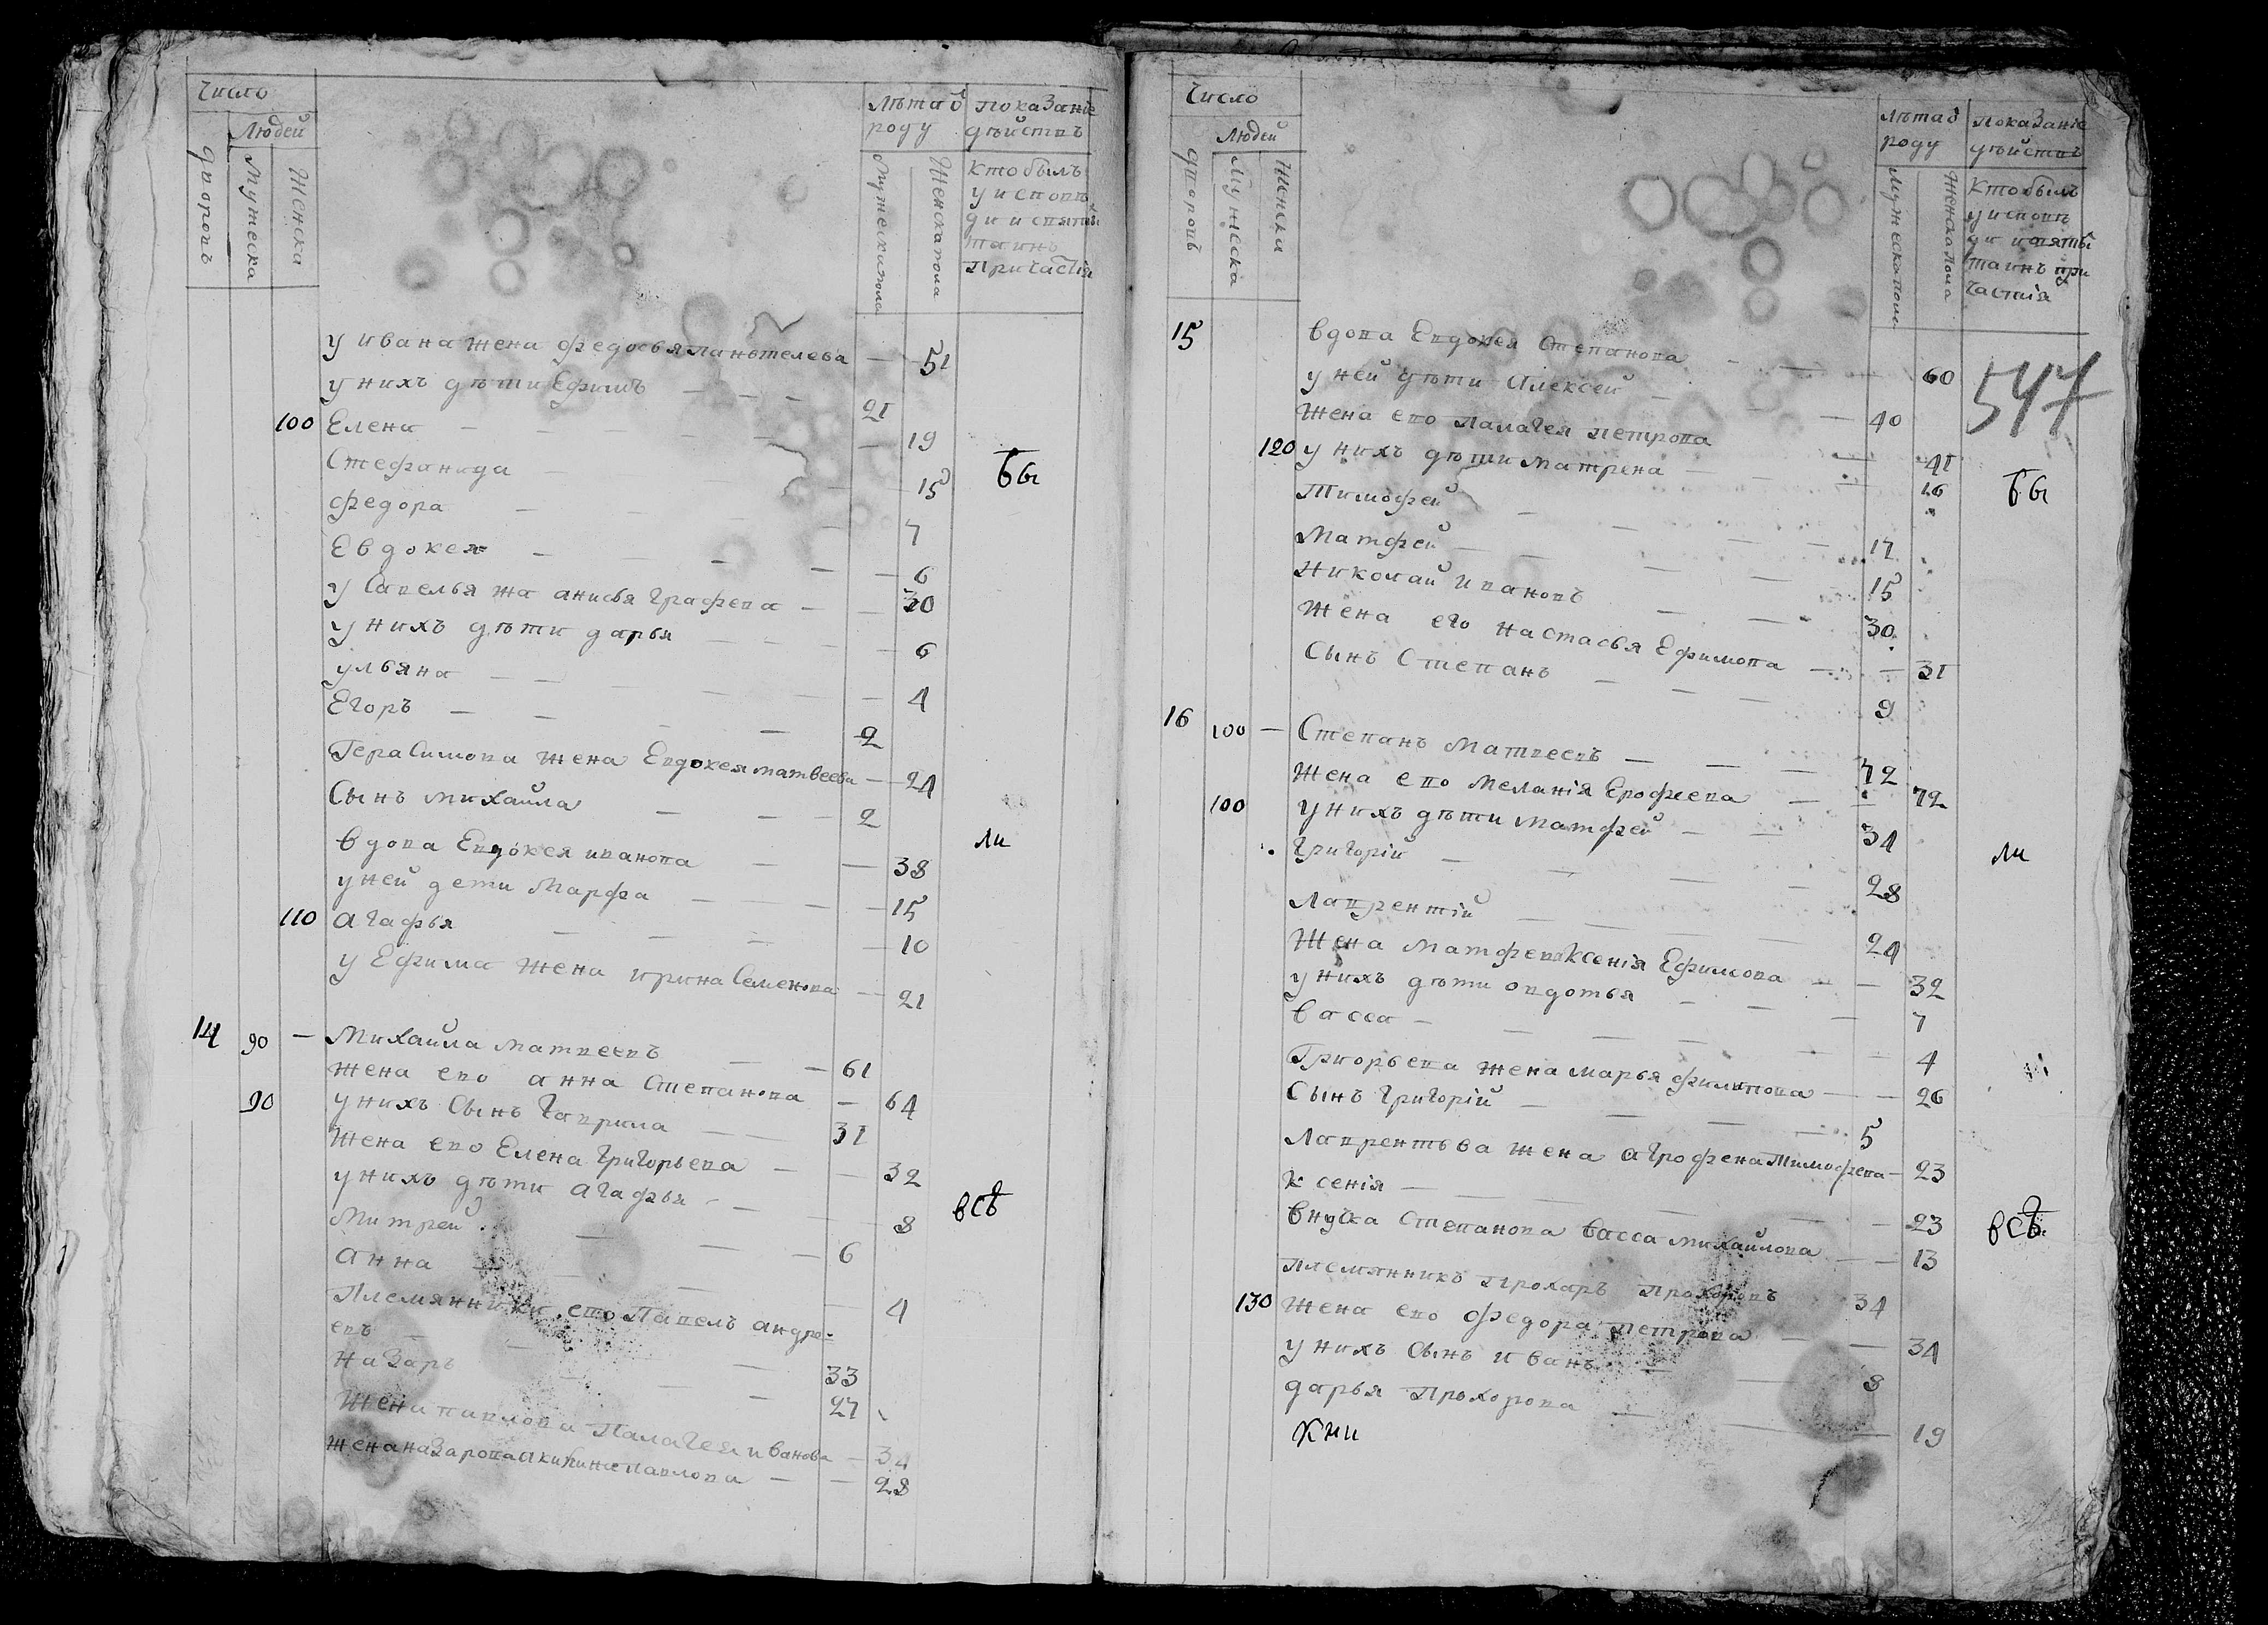 Число
Людей
дворовъ
Мужеска
Женска
Лѣта ѿ роду
Мужеска пола
Женска пола
показаніе дѣйствъ
кто былъ
у исповѣ
ди и святы
таинъ
Причастія
у ивана жена федосья панътелева — 51
у нихъ дѣти Ефимъ — 21
100 Елена — 19
Стефанида — 15
федора — 7
Евдокея — 6
у Савелья жа анисья Графева — 30
у нихъ дѣти дарья — 6
ульяна — 4
Егоръ — 2
Герасимова жена Евдокея матвеева — 24
Сынъ михайла — 2
вдова Евдокея иванова — 38
у ней дети Марфа — 15
110 агафья — 10
у Ефима жена ирина Семенова — 21
14 90 — Михайла матвеевъ — 61
жена ево анна Степанова — 64
90 у нихъ Сынъ Гаврила — 31
жена ево Елена Григорьева — 32
у нихъ дѣти агафья — 8
Митрей — 6
анна — 4
Племянники ево Павелъ андре=
евъ — 33
назаръ — 27
жена павлова Палагея иванова — 34
жена назарова акилина павлова — 28
бы
ли
всѣ
Число
Людей
дворовъ
Мужеска
Женска
лѣта ѿ роду
Мужеска пола
Женска пола
показаніе дѣйствъ
Кто былъ
у исповѣ
ди и святы
таинъ при
частія
547
15 вдова Евдокея Степанова — 60
у ней дѣти Алексей — 40
жена ево палагея петрова — 41
120 у нихъ дѣти матрена — 16
Тимофей — 17
Матфей — 15
николай ивановъ — 30
жена его настасья Ефимова — 31
Сынъ Степанъ — 9
16 100 — Степанъ матвеевъ — 72
жена ево меланія Ерофеева — 72
100 у нихъ дѣти матфей — 34
Григорій — 28
лаврентій — 24
жена матфева Ксенія Ефимова — 32
у нихъ дѣти овдотья — 7
васса — 4
Григорьева жена марья филипова — 26
Сынъ Григорій — 5
лаврентьва жена агрофена Тимофева — 23
ксенія — 23
внучка Степанова васса михайлова — 13
племянникъ прохаръ прохоровъ 34
130 жена ево федора петрова — 34
у нихъ Сынъ иванъ — 8
дарья Прохорова — 19
кни
бы
ли
всѣ